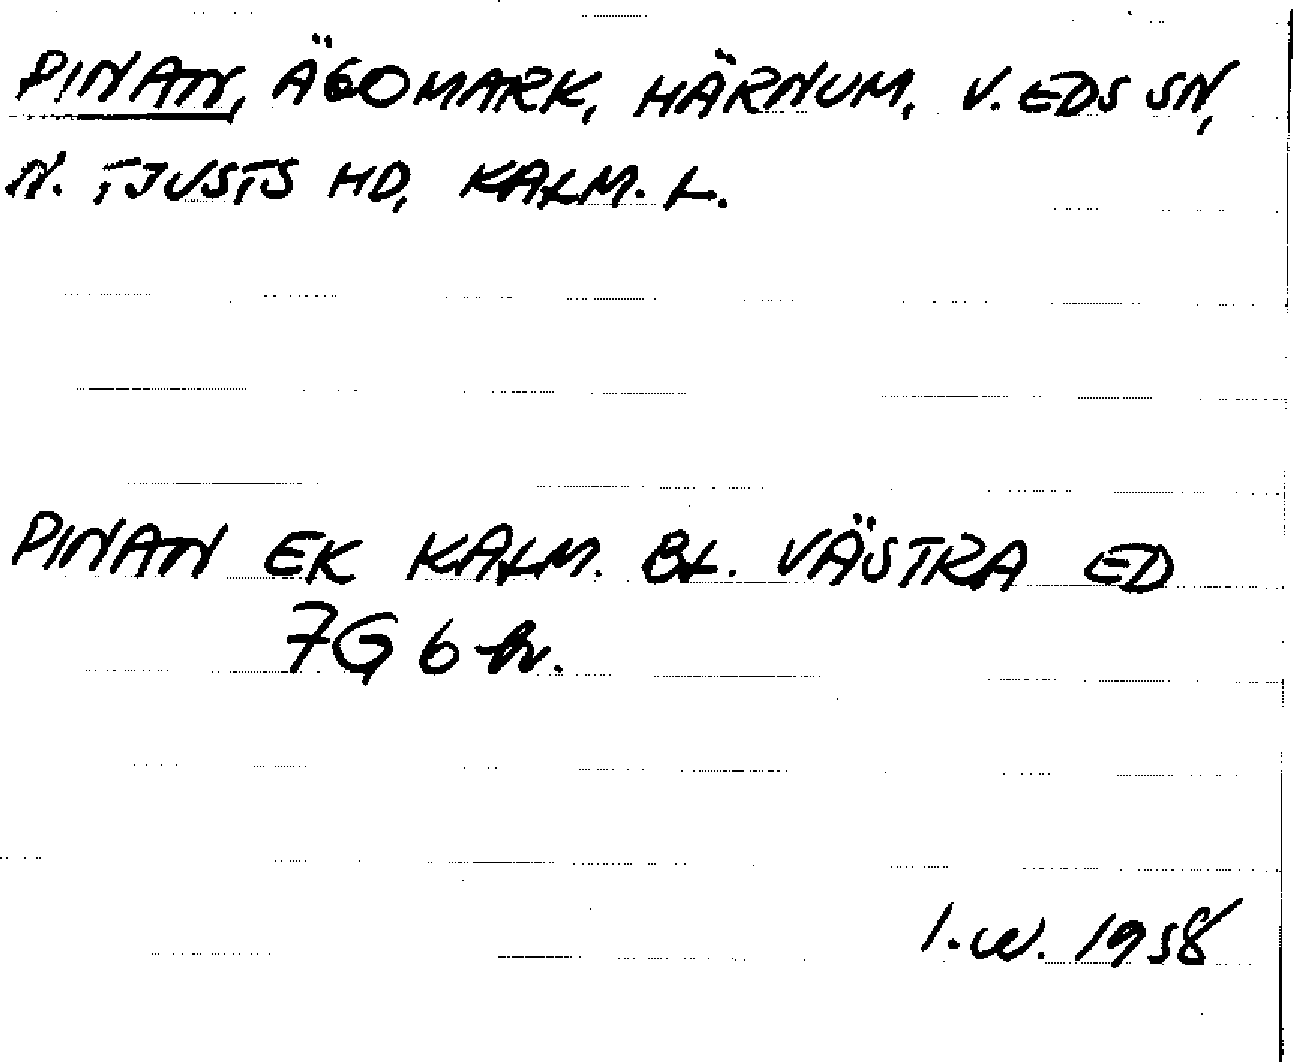 PINAN, ÄGOMARK, HÄRNUM, V. EDS SN,
N. TJUSTS HD, KALM. L.
PINAN EK KALM. BL. VÄSTRA ED
7G 6
I.W. 1958